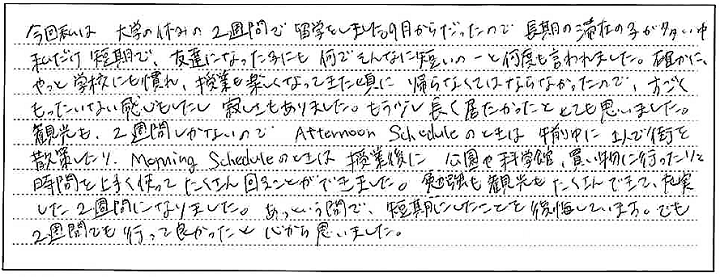 今回私は 大学の休みの2週間で留学をしました。9月からだったので 長期の滞在の子が多い中
私だけ短期で、友達になった子にも 何でそんなに短いのーと何度も言われました。確かに、
やっと学校にも慣れ、授業も楽しくなってきた頃に 帰らなくてはならなかったので、すごく
もったいない感じもしたし 寂しくもありました。もう少し長く居たかったととても思いました。
観光も、2週間しかないので Afternoon Scheduleのときは 午前中に1人で街を
散策したり、Morning Scheduleのときは 授業後に 公園や科学館、買い物に行ったりと
時間を上手く使って たくさん回ることができました。勉強も観光も たくさんできて、充実
した2週間になりました。あっという間で、短期にしたことを後悔しています。でも
2週間でも行って良かったと 心から思いました。